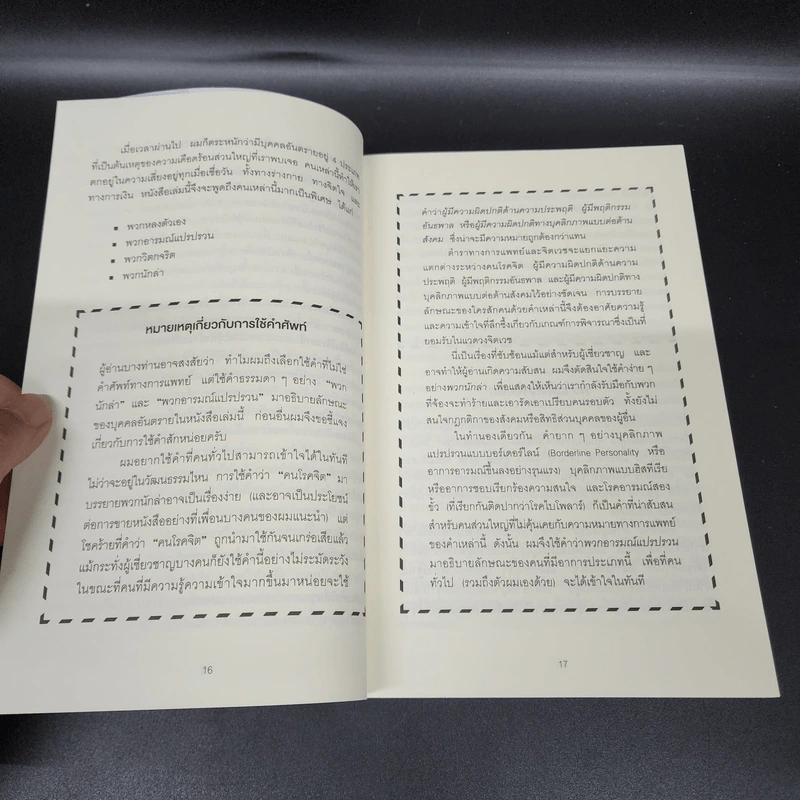 เมื่อเวลาผ่านไป ผมก็ตระหนักว่ามีบุคคลอันตรายอยู่ 4 ประเภท
ที่เป็นต้นเหตุของความเดือดร้อนส่วนใหญ่ที่เราพบเจอ คนเหล่านี้ทำให้เรา
ตกอยู่ในความเสี่ยงอยู่ทุกเมื่อเชื่อวัน ทั้งทางร่างกาย ทางจิตใจ และ
ทางการเงิน หนังสือเล่มนี้จึงจะพูดถึงคนเหล่านี้มากเป็นพิเศษ ได้แก่
▪ พวกหลงตัวเอง
▪ พวกอารมณ์แปรปรวน
▪ พวกวิตกจริต
▪ พวกนักล่า
หมายเหตุเกี่ยวกับการใช้คำศัพท์
ผู้อ่านบางท่านอาจสงสัยว่า ทำไมผมถึงเลือกใช้คำที่ไม่ใช่
คำศัพท์ทางการแพทย์ แต่ใช้คำธรรมดา ๆ อย่าง “พวก
นักล่า” และ “พวกอารมณ์แปรปรวน” มาอธิบายลักษณะ
ของบุคคลอันตรายในหนังสือเล่มนี้ ก่อนอื่นผมจึงขอชี้แจง
เกี่ยวกับการใช้คำสักหน่อยครับ
ผมอยากใช้คำที่คนทั่วไปสามารถเข้าใจได้ในทันที
ไม่ว่าจะอยู่ในวัฒนธรรมไหน การใช้คำว่า “คนโรคจิต” มา
บรรยายพวกนักล่าอาจเป็นเรื่องง่าย (และอาจเป็นประโยชน์
ต่อการขายหนังสืออย่างที่เพื่อนบางคนของผมแนะนำ) แต่
โชคร้ายที่คำว่า “คนโรคจิต” ถูกนำมาใช้กันจนเกร่อเสียแล้ว
แม้กระทั่งผู้เชี่ยวชาญบางคนก็ยังใช้คำนี้อย่างไม่ระมัดระวัง
ในขณะที่คนที่มีความรู้ความเข้าใจมากขึ้นมาหน่อยจะใช้
16
คำว่าผู้มีความผิดปกติด้านความประพฤติ ผู้มีพฤติกรรม
อันธพาล หรือผู้มีความผิดปกติทางบุคลิกภาพแบบต่อต้าน
สังคม ซึ่งน่าจะมีความหมายถูกต้องกว่าแทน
ตำราทางการแพทย์และจิตเวชจะแยกแยะความ
แตกต่างระหว่างคนโรคจิต ผู้มีความผิดปกติด้านความ
ประพฤติ ผู้มีพฤติกรรมอันธพาล และผู้มีความผิดปกติทาง
บุคลิกภาพแบบต่อต้านสังคมไว้อย่างชัดเจน การบรรยาย
ลักษณะของใครสักคนด้วยคำเหล่านี้จึงต้องอาศัยความรู้
และความเข้าใจที่ลึกซึ้งเกี่ยวกับเกณฑ์การพิจารณาซึ่งเป็นที่
ยอมรับในแวดวงจิตเวช
นี่เป็นเรื่องที่ซับซ้อนแม้แต่สำหรับผู้เชี่ยวชาญ และ
อาจทำให้ผู้อ่านเกิดความสับสน ผมจึงตัดสินใจใช้คำง่าย ๆ
อย่างพวกนักล่า เพื่อแสดงให้เห็นว่าเรากำลังรับมือกับพวก
ที่จ้องจะทำร้ายและเอารัดเอาเปรียบคนรอบตัว ทั้งยังไม่
สนใจกฎกติกาของสังคมหรือสิทธิส่วนบุคคลของผู้อื่น
ในทำนองเดียวกัน คำยาก ๆ อย่างบุคลิกภาพ
แปรปรวนแบบบอร์เดอร์ไลน์ (Borderline Personality หรือ
อาการอารมณ์ขึ้นลงอย่างรุนแรง) บุคลิกภาพแบบฮิสทีเรีย
หรืออาการชอบเรียกร้องความสนใจ และโรคอารมณ์สอง
ขั้ว (ที่เรียกกันติดปากว่าโรคไบโพลาร์) ก็เป็นคำที่น่าสับสน
สำหรับคนส่วนใหญ่ที่ไม่คุ้นเคยกับความหมายทางการแพทย์
ของคำเหล่านี้ ดังนั้น ผมจึงใช้คำว่าพวกอารมณ์แปรปรวน
มาอธิบายลักษณะของคนที่มีอาการประเภทนี้ เพื่อที่คน
ทั่วไป (รวมถึงตัวผมเองด้วย) จะได้เข้าใจในทันที
17